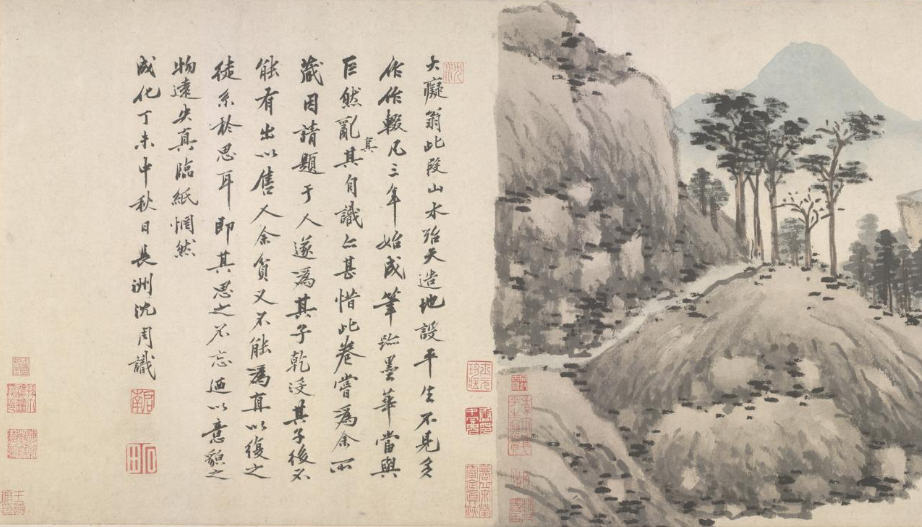 大癡翁此段山水殆天造地設平生不見多
作作輟凡三年始成筆跡墨華當與
巨然亂真其自識亦甚惜此卷嘗為余所
藏因請題于人遂為其子乾沒其子後不
能有出以售人余貧又不能為直以復之
徒系於思耳即其思之不忘迺以意貌之
物遠失真臨紙惘然
成化丁未中秋日長洲沈周識
啟南
石田